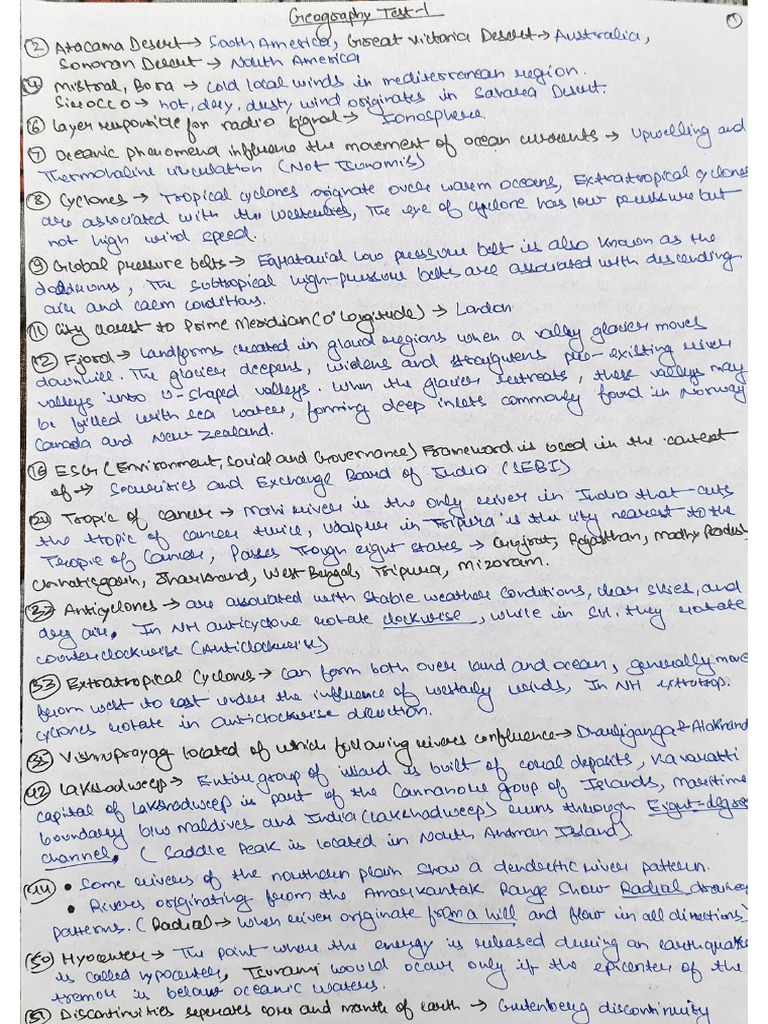 Geography Test-1
①
② Atacama Desert → South America, Great Victoria Desert → Australia,
Sonoran Desert → North America
④ Mistral, Bora → cold local winds in mediterranean region.
Sirocco → hot, dry, dusty wind originates in Sahara Desert.
⑥ Layer responsible for radio signal → Ionosphere.
⑦ Oceanic phenomena influence the movement of ocean currents → Upwelling and
Thermohaline circulation (Not Tsunamis)
⑧ Cyclones → Tropical cyclones originate over warm oceans, Extratropical cyclones
are associated with the westerlies, The eye of cyclone has low pressure but
not high wind speed.
⑨ Global pressure belts → Equatorial low pressure belt is also known as the
doldrums, The subtropical high-pressure belts are associated with descending
air and calm conditions.
⑪ City closest to Prime Meridian (0° longitude) → London
⑫ Fjord → Landforms created in glacial regions when a valley glacier moves
downhill. The glacier deepens, widens and straightens pre-existing river
valleys into U-shaped valleys. When the glacier retreats, these valleys may
be filled with sea water, forming deep inlets commonly found in Norway
Canada and New Zealand.
⑱ ESG (Environment, Social and Governance) Framework is used in the context
of → Securities and Exchange Board of India (SEBI)
Tropic of cancer → Mahi river is the only river in India that cuts
the tropic of cancer twice, Udaipur in Tripura is the city nearest to the
Tropic of Cancer, Passes Trough eight states → Gujrat, Rajasthan, Madhy Pradesh
Chhatisgarh, Jharkhand, West Bengal, Tripura, Mizoram.
Anticyclones → are associated with stable weather conditions, clear skies, and
dry air. In NH anticyclone rotate clockwise, while in SH. they rotate
counterclockwise (Anticlockwise)
㉝ Extratropical Cyclones → can form both over land and ocean, generally move
from west to east under the influence of westerly winds, In NH extratrop.
cyclones rotate in anticlockwise direction.
㉟ Vishnuprayag located of which following rivers confluence → Dhauliganga & Alaknand
㊷ Lakshadweep → Entire group of island is built of coral deposits, Kavaratti
capital of Lakshadweep is part of the Cannanore group of Islands, Maritime
boundary b/w Maldives and India (Lakshadweep) runs through Eight-degree
channel. (Saddle Peak is located in North Andman Island)
㊹ • Some rivers of the northern plain show a dendretic river pattern.
• Rivers originating from the Amarkantak Range Show Radial drainage
patterns. (Radial → When river originate from a hill and flow in all directions)
㊿ Hyocenter → The point where the energy is released during an earthquake
is called hypocenter, Tsunami would occur only if the epicenter of the
tremor is below oceanic waters.
(51) Discontinuities seperates core and mantle of earth → Gutenberg discontinuity